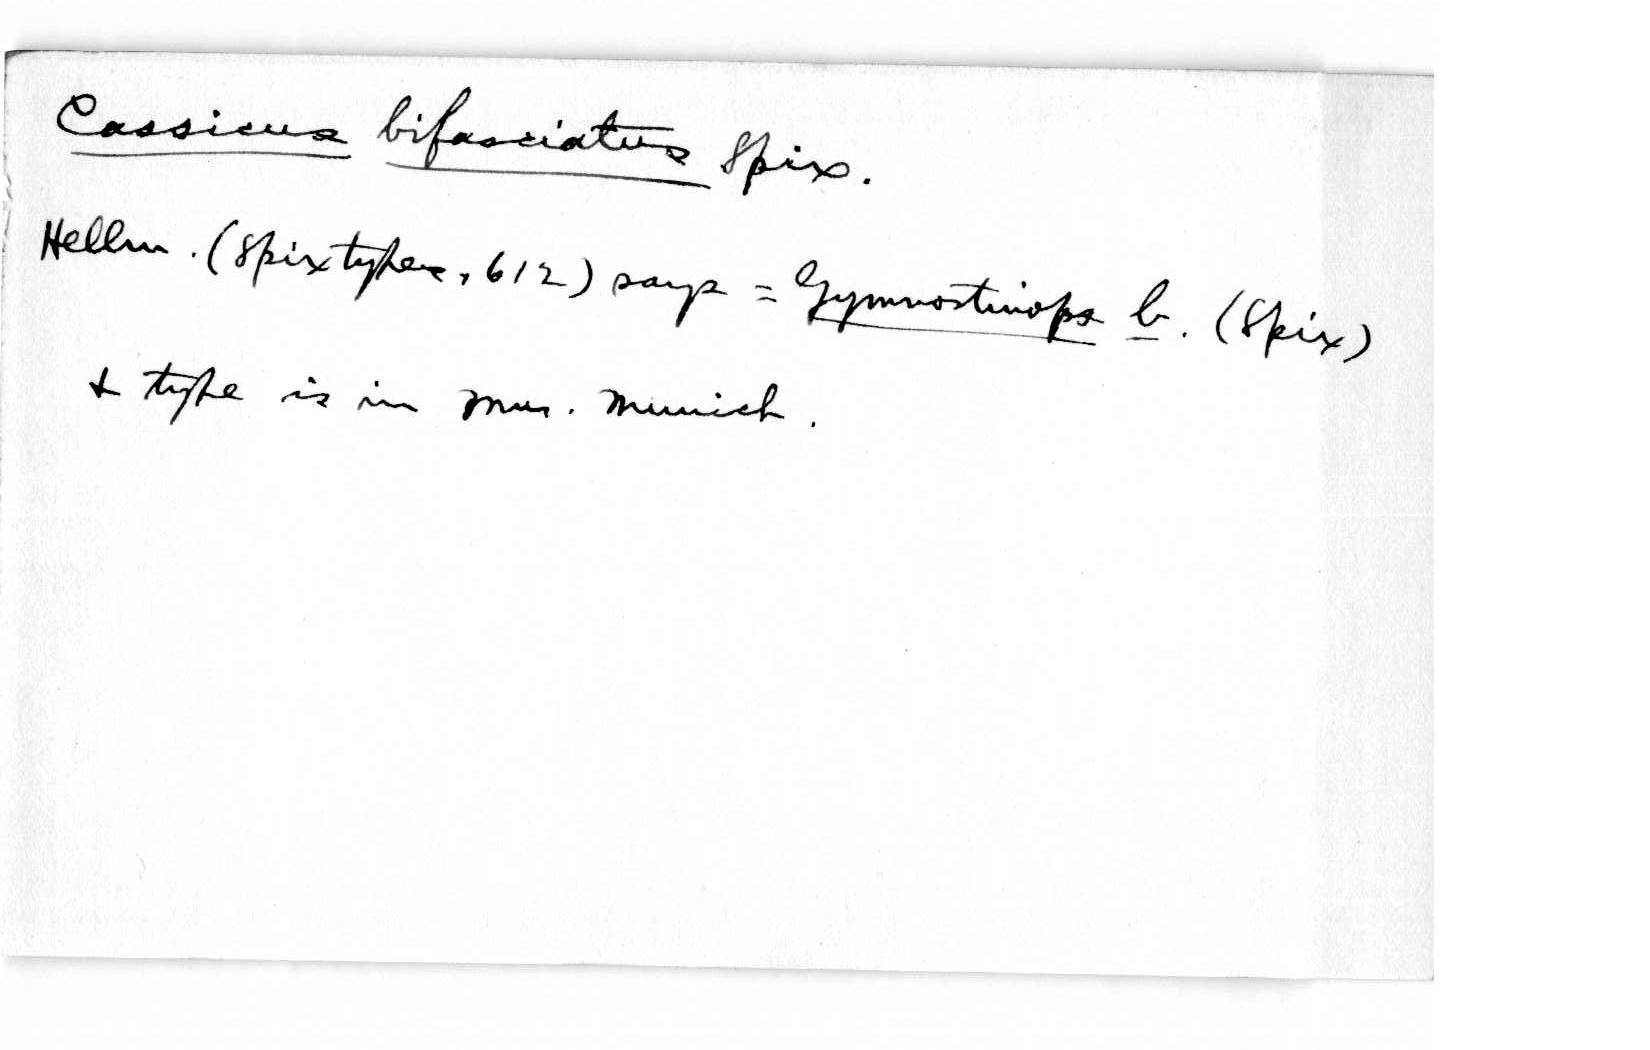 Cassicus bifasciatus Spix.
Hellm. (Spixtypes, 612) says = Gymnostinops b. (Spix)
& type is in Mus. Munich.